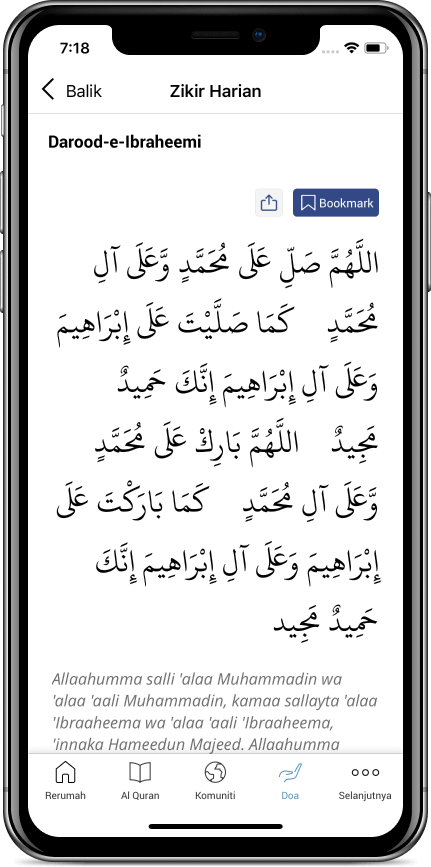 7:18
Balik
Zikir Harian
Darood-e-Ibraheemi
Bookmark
اللَّهُمَّ صَلِّ عَلَى مُحَمَّدٍ وَّعَلَى آلِ
مُحَمَّدٍ كَمَا صَلَّيْتَ عَلَى إِبْرَاهِيمَ
وَعَلَى آلِ إِبْرَاهِيمَ إِنَّكَ حَمِيدٌ
مَجِيدٌ اللَّهُمَّ بَارِكْ عَلَى مُحَمَّدٍ
وَّعَلَى آلِ مُحَمَّدٍ كَمَا بَارَكْتَ عَلَى
إِبْرَاهِيمَ وَعَلَى آلِ إِبْرَاهِيمَ إِنَّكَ
حَمِيدٌ مَجِيد
Allaahumma salli 'alaa Muhammadin wa
'alaa 'aali Muhammadin, kamaa sallayta 'alaa
'Ibraaheema wa 'alaa 'aali 'Ibraaheema,
'innaka Hameedun Majeed. Allaahumma
Rerumah
Al Quran
Komuniti
Doa
Selanjutnya